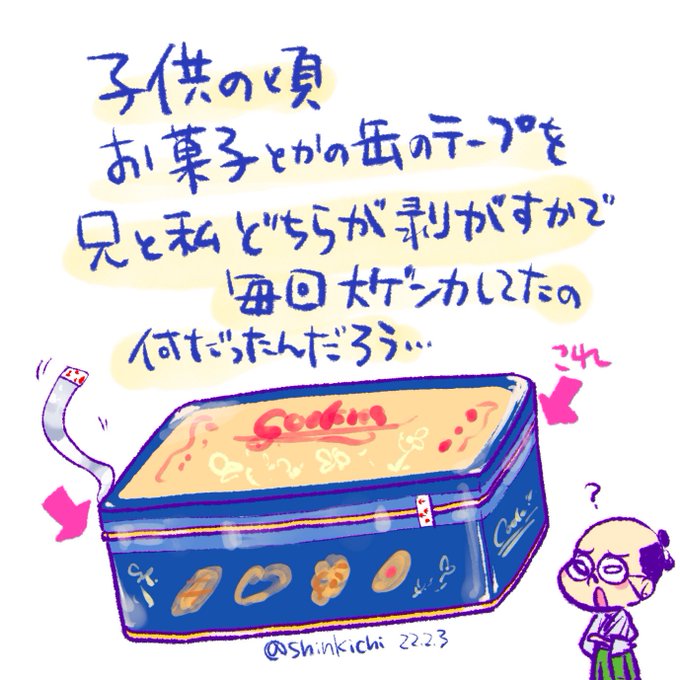 子供の頃
お菓子とかの缶のテープを
兄と私どちらが剥がすかで
毎回大ゲンカしてたの
何だったんだろう…
これ
?
@shinkichi 22.2.3